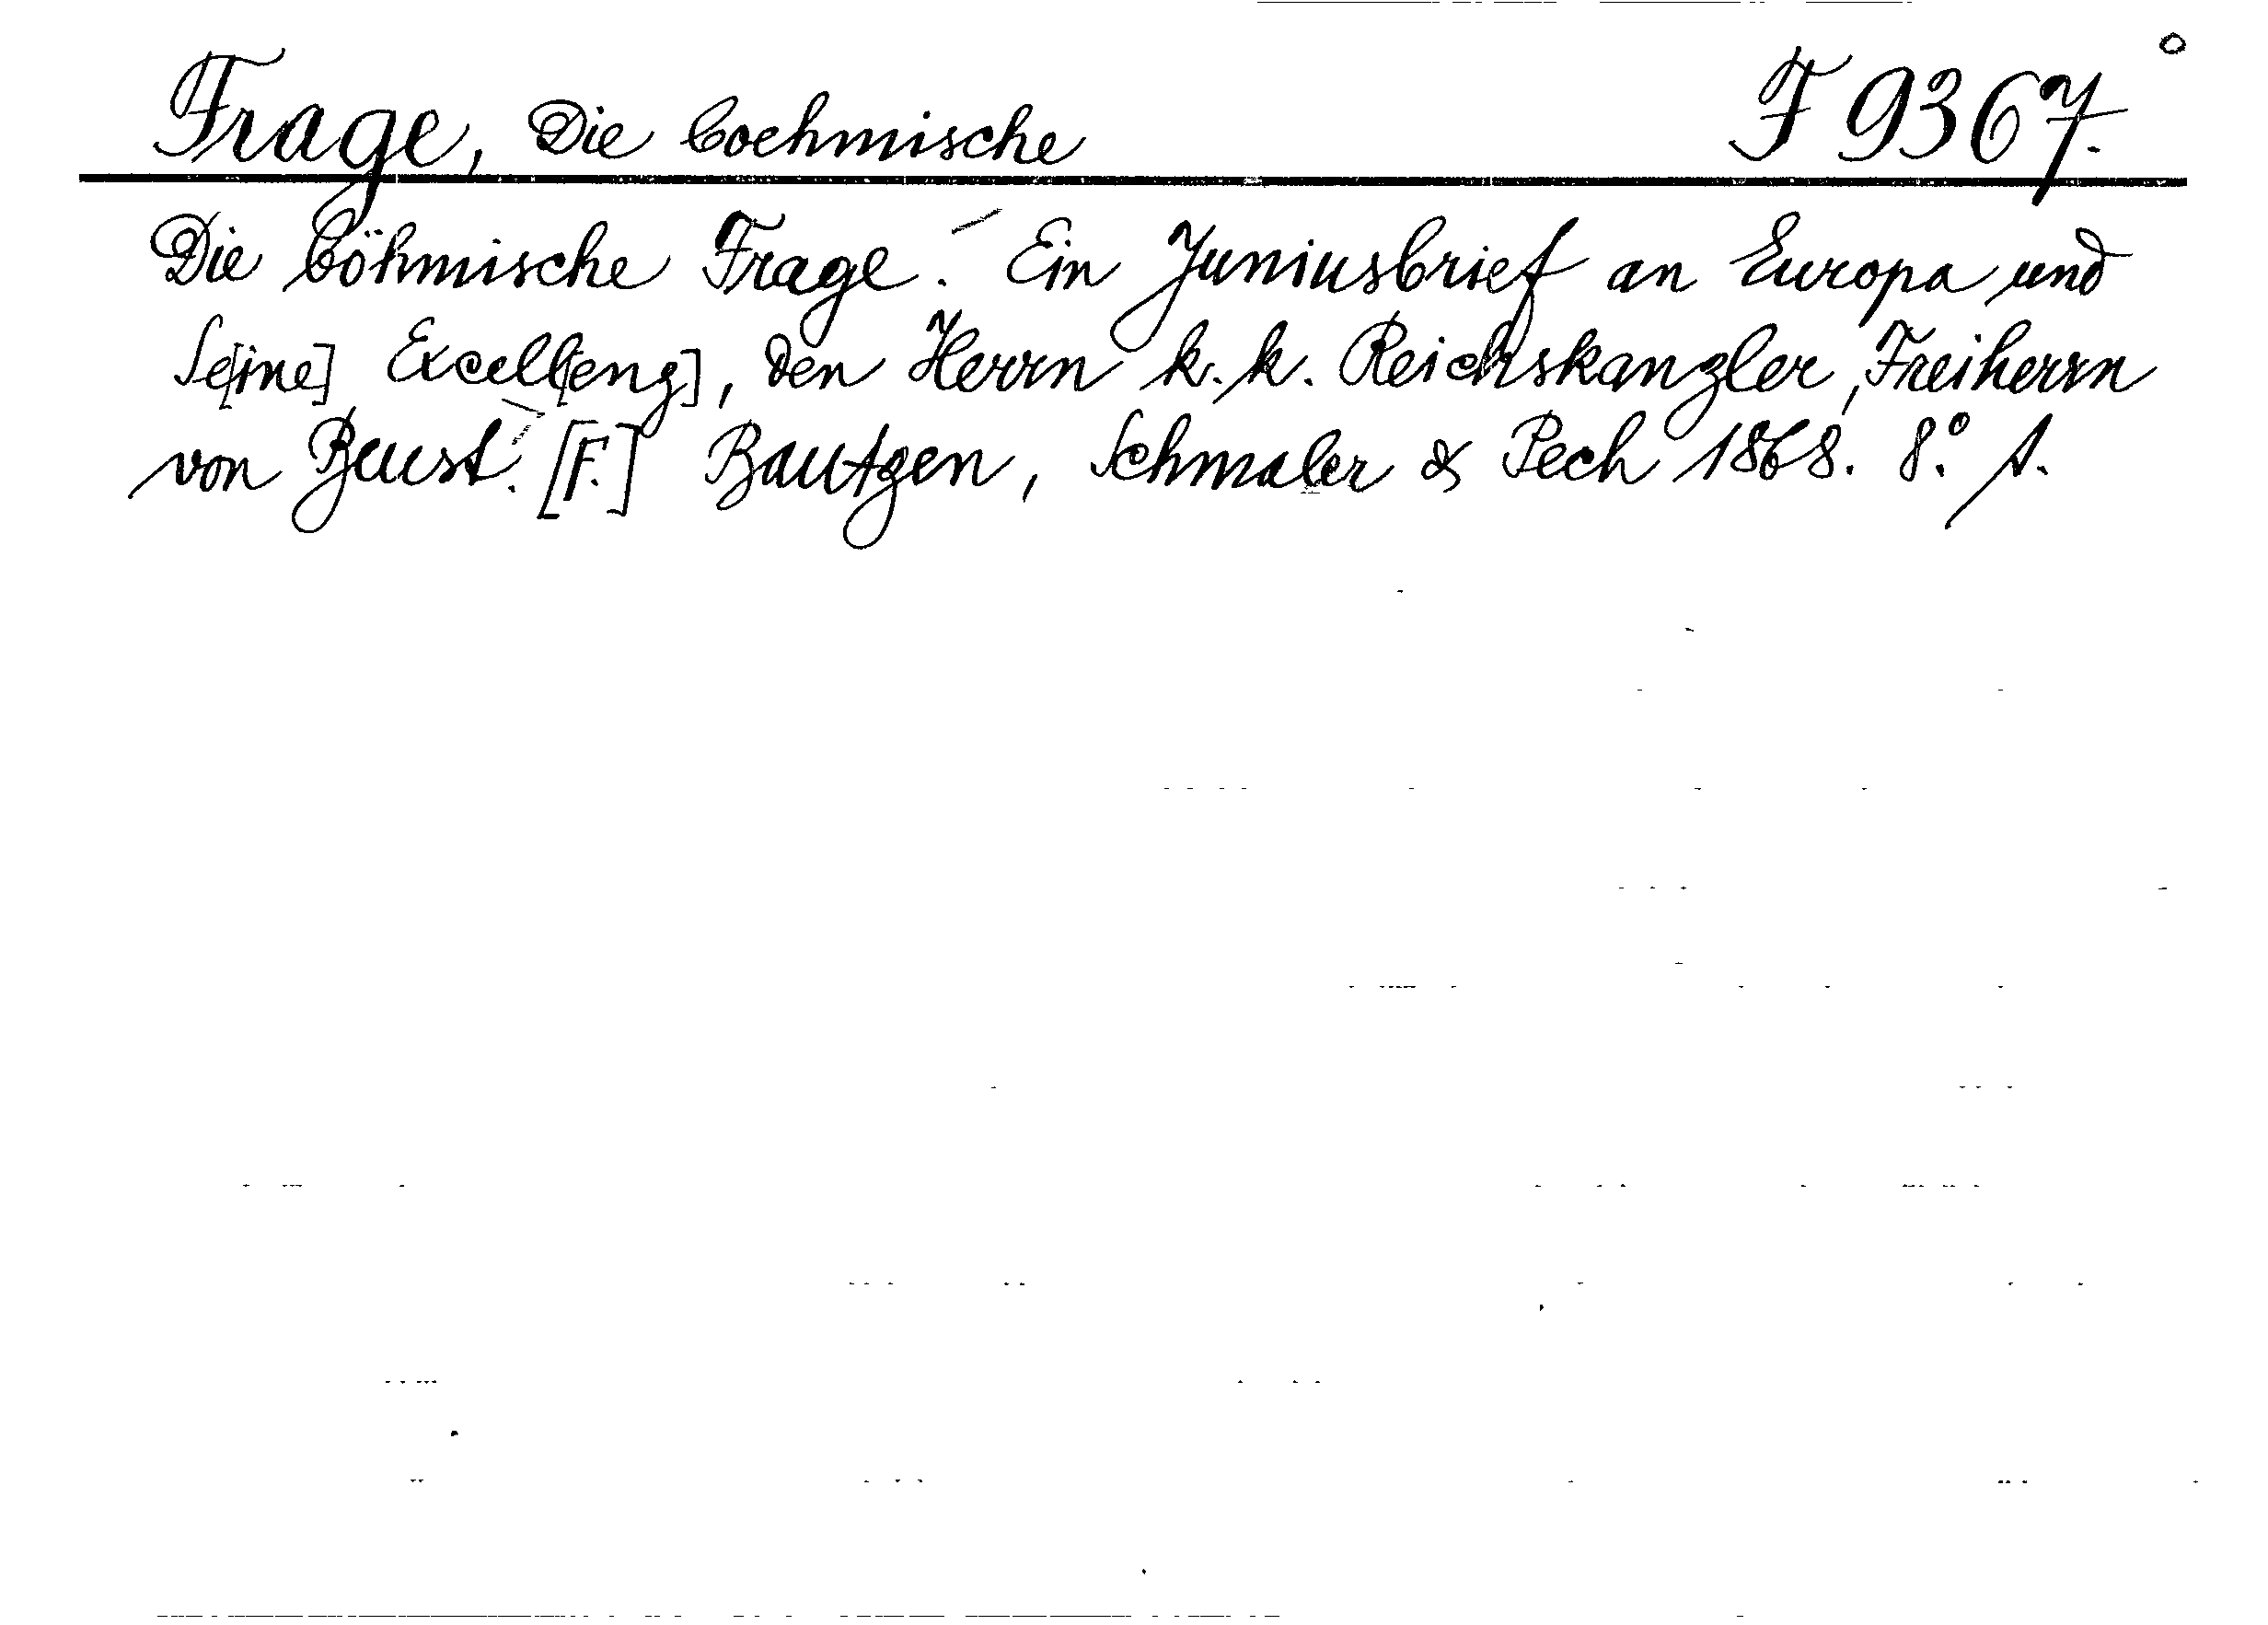 Frage, Die boehmische F 9367.
Die böhmische Frage. Ein Juniusbrief an Europa und
Se[ine] Excell[enz], den Herrn k. k. Reichskanzler, Freiherrn
von Beust. [F.] Bautzen, Schmaler & Pech 1868. 8.° A.